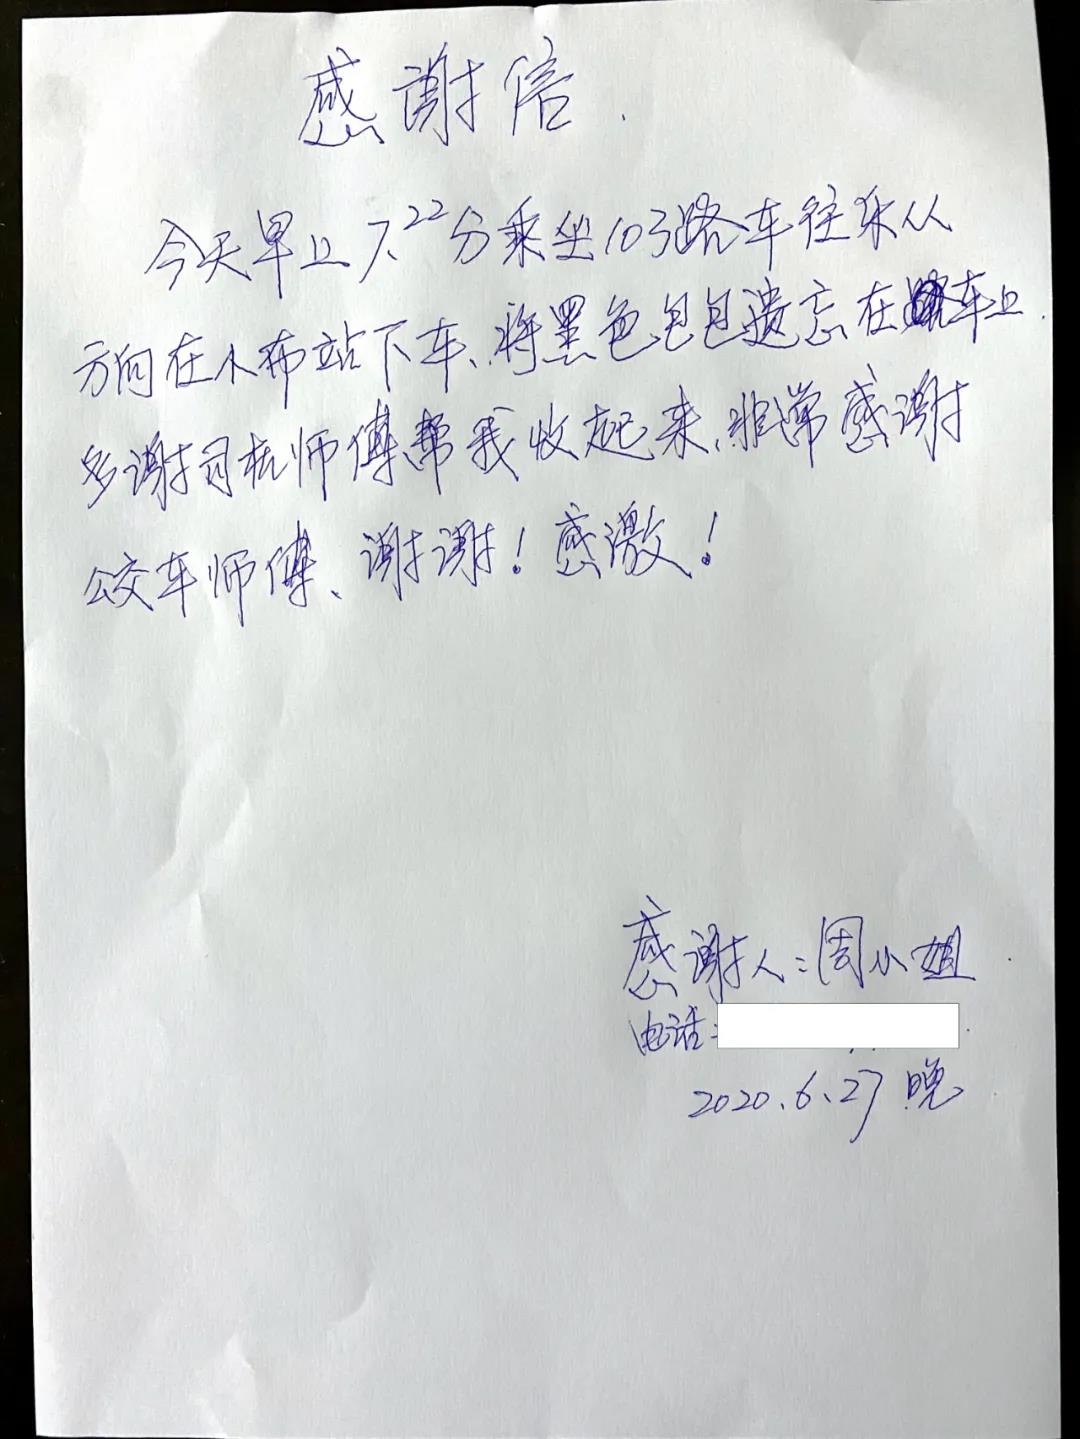 感谢信.
今天早上7.22分乘坐103路车往东从
方向在小布站下车、将黑色包包遗忘在车上.
多谢司机师傅帮我收起来、非常感谢
公交车师傅、谢谢！感激！
感谢人：周小姐.
电话：
2020.6.27晚